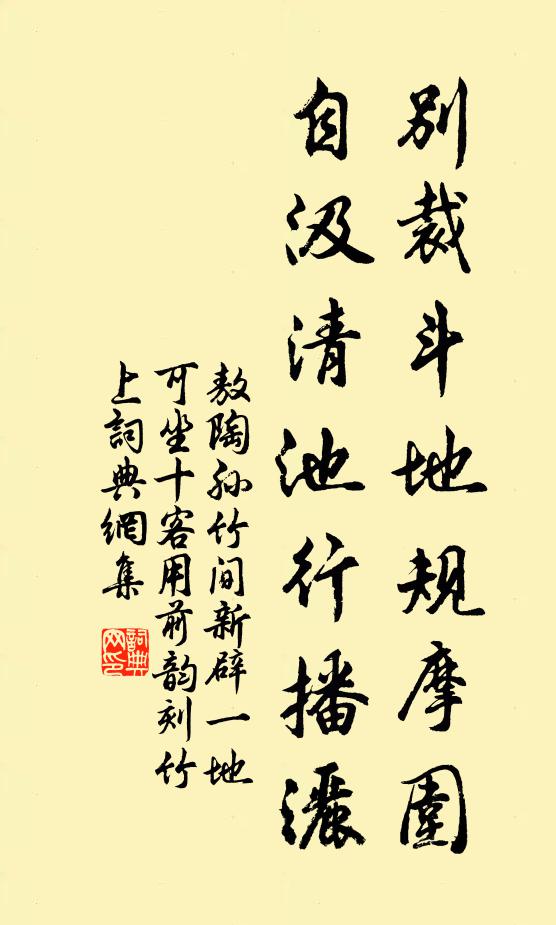 別裁斗地規摩圍
自汲清池行播灑
敖陶孙竹间新辟一地
可坐十客用前韵刻竹
上詞典網集
詞典网印